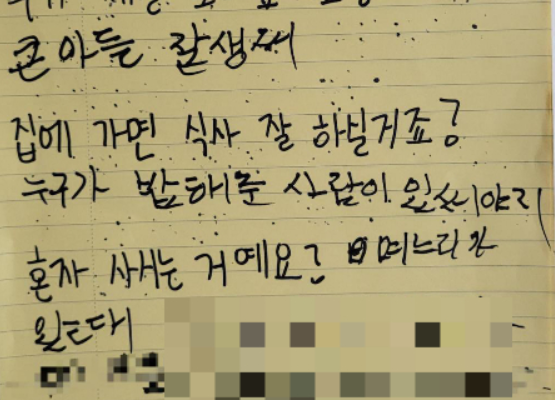 큰아들 잘생겨
집에 가면 식사 잘 하실거죠?
누구가 밥해준 사람이 있쓰야지
혼자 사시는 거예요? 며느리가
있는대